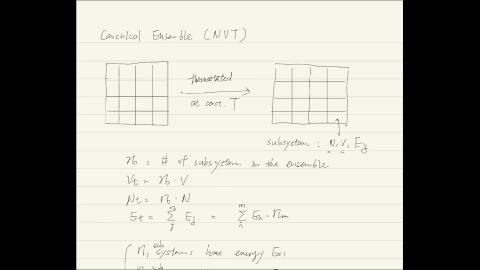 Canonical Ensemble (NVT)
thermostated
at const. T
subsystem : N, V, Ej
η = # of subsystem in the ensemble
Vt = η · V
Nt = η · N
Et = Σ Ej =
systems have energy